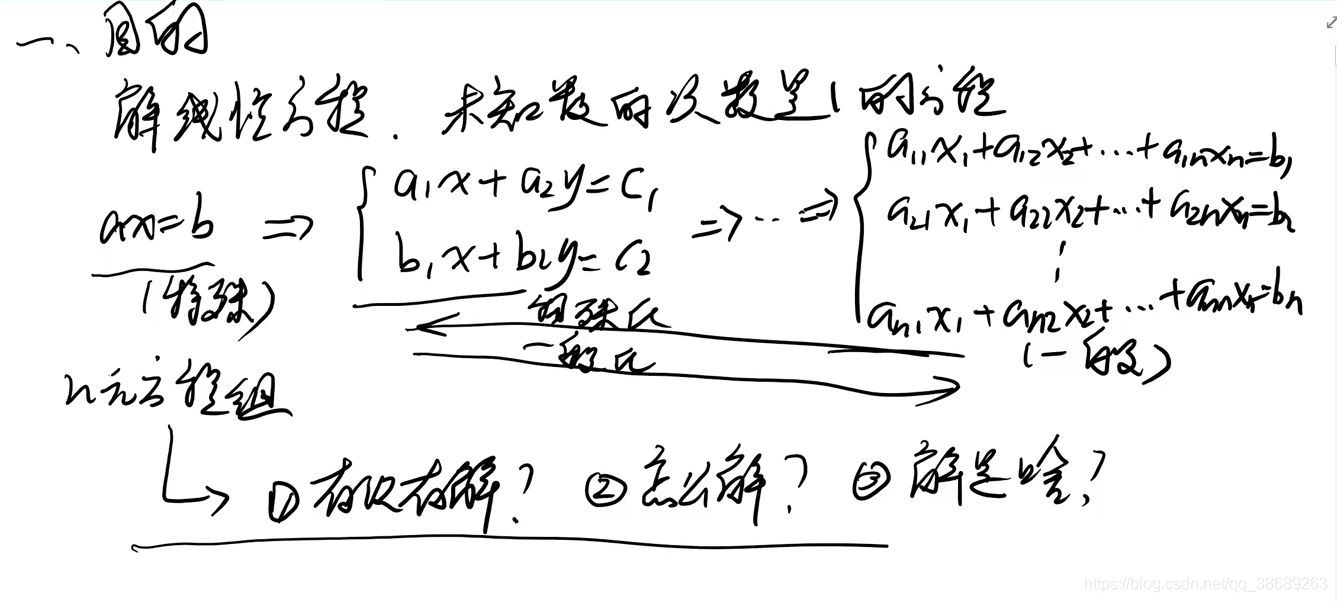 一、目的
解线性方程. 未知数的次数是1的方程
ax=b ⇒ { a₁x+a₂y=c₁ ⇒ ⋯ ⇒ { a₁₁x₁+a₁₂x₂+⋯+a₁ₙxₙ=b₁
b₁x+b₂y=c₂ a₂₁x₁+a₂₂x₂+⋯+a₂ₙxₙ=b₂
⋮
aₙ₁x₁+aₙ₂x₂+⋯+aₙₙxₙ=bₙ
(特殊) (一般)
特殊化
一般化
n元方程组
① 有没有解? ② 怎么解? ③ 解是啥?
https://blog.csdn.net/qq_38689263